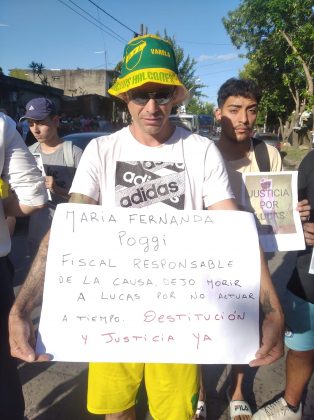 VARELA
adidas
MARÍA FERNANDA
POGGI
FISCAL RESPONSABLE
DE LA CAUSA, DEJO MORIR
A LUCAS POR NO ACTUAR
A TIEMPO. DESTITUCIÓN
Y JUSTICIA YA
JUSTICIA
POR
LUCAS